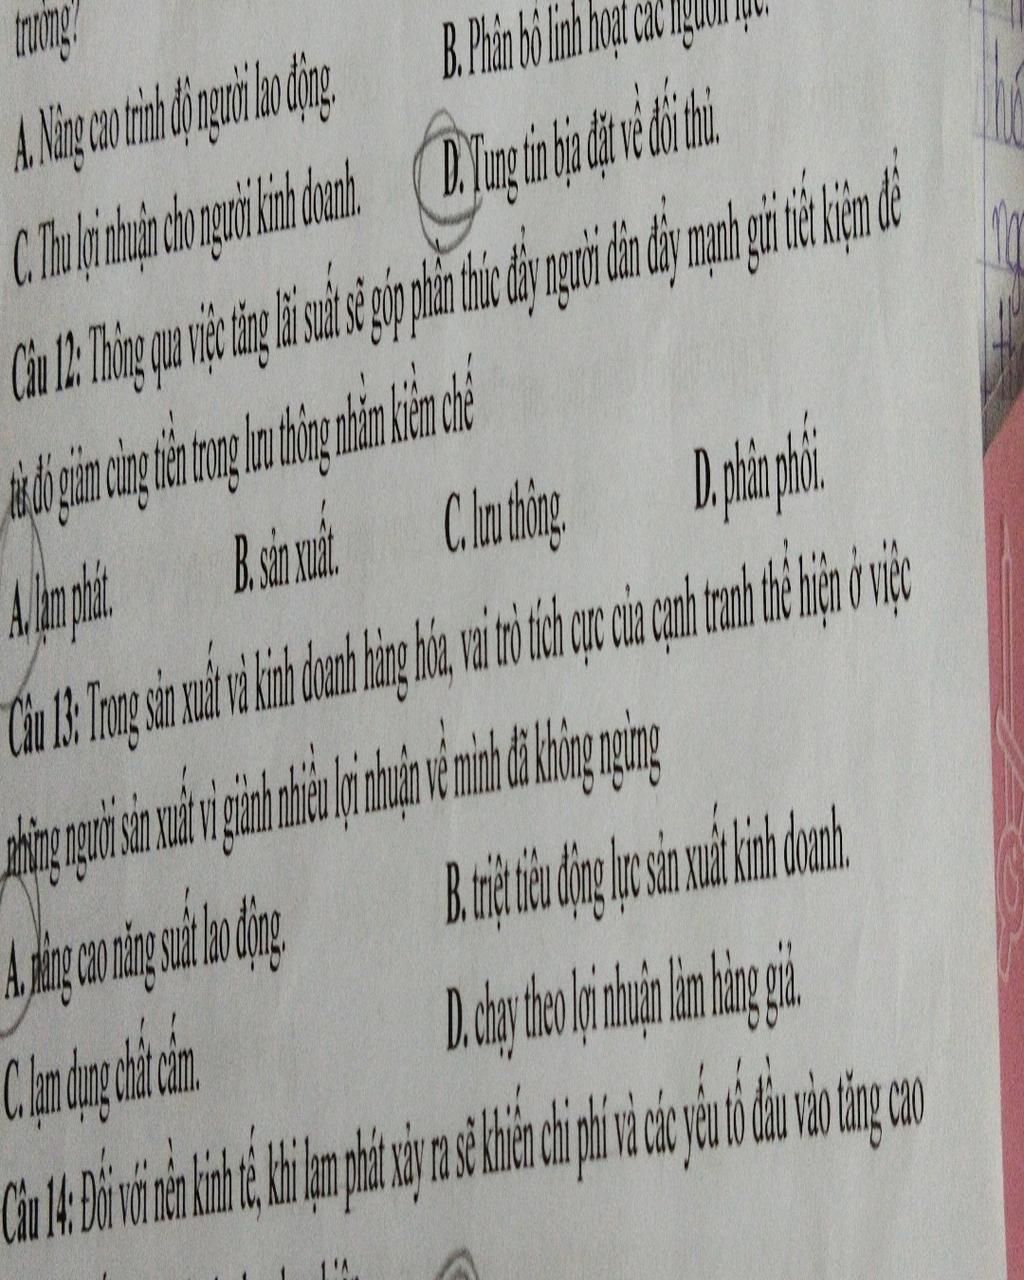 trường?
B. Phân bổ linh hoạt các nguồn lực.
A. Nâng cao trình độ người lao động.
D. Tung tin bịa đặt về đối thủ.
C. Thu lợi nhuận cho người kinh doanh.
Câu 12: Thông qua việc tăng lãi suất sẽ góp phần thúc đẩy người dân đẩy mạnh gửi tiết kiệm để
từ đó giảm cùng tiền trong lưu thông nhằm kiềm chế
A. lạm phát. B. sản xuất. C. lưu thông. D. phân phối.
Câu 13: Trong sản xuất và kinh doanh hàng hóa, vai trò tích cực của cạnh tranh thể hiện ở việc
những người sản xuất vì giành nhiều lợi nhuận về mình đã không ngừng
A. nâng cao năng suất lao động. B. triệt tiêu động lực sản xuất kinh doanh.
C. lạm dụng chất cấm. D. chạy theo lợi nhuận làm hàng giả.
Câu 14: Đối với nền kinh tế, khi lạm phát xảy ra sẽ khiến chi phí và các yếu tố đầu vào tăng cao